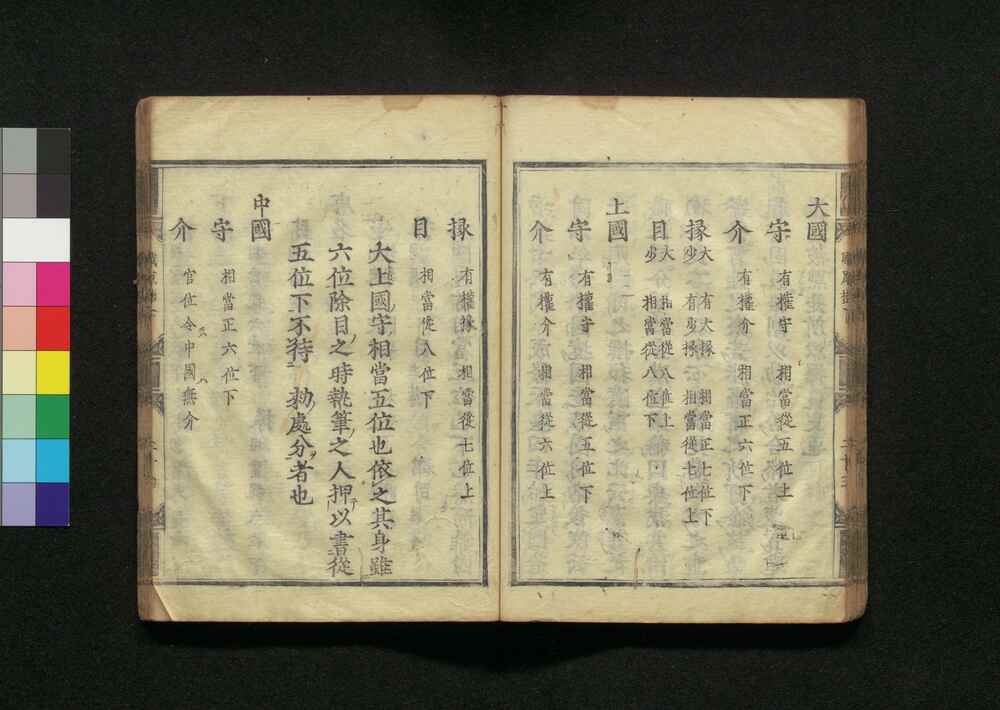 大國
守 有權守 相當從五位上
介 有權介 相當正六位下
掾 大 有大掾 相當正七位下
少 有少掾 相當從七位上
目 大 相當從八位上
少 相當從八位下
上國
守 有權守 相當從五位下
介 有權介 相當從六位上
掾 有權掾 相當從七位上
目 相當從八位下
大上國守相當五位也依之其身雖
六位除目之時執筆之人押以書從
五位下不待 勅處分者也
中國
守 相當正六位下
介 官位令中國無介